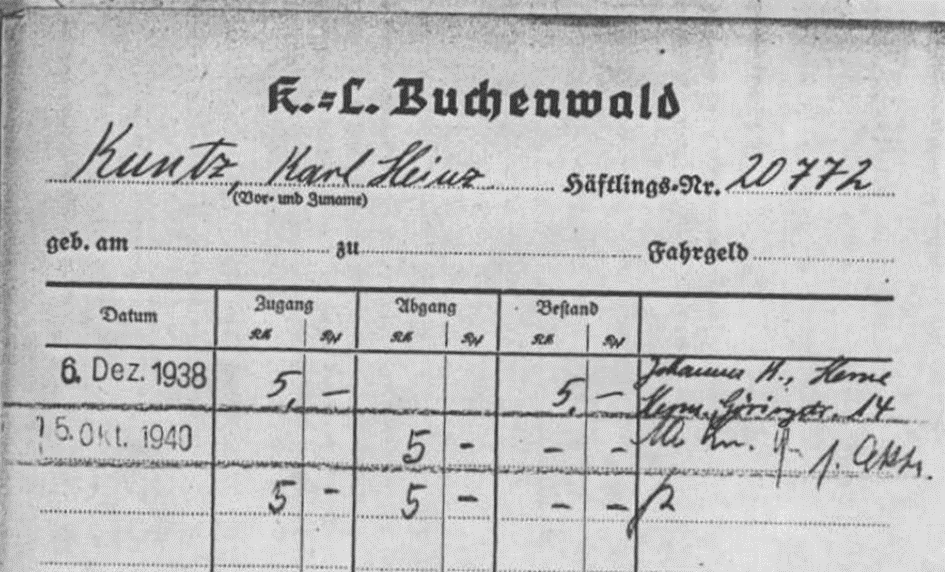 K.=L. Buchenwald
Kuntz, Karl Heinz Häftlings-Nr. 20772
(Vor- und Zuname)
geb. am zu Fahrgeld
Datum Zugang Abgang Bestand
RM Rpf RM Rpf RM Rpf
6. Dez. 1938 5,— 5,— Johannes K., Herne
Herm. Göringstr. 14
15. Okt. 1940 5 - - -
5 - 5 - - -